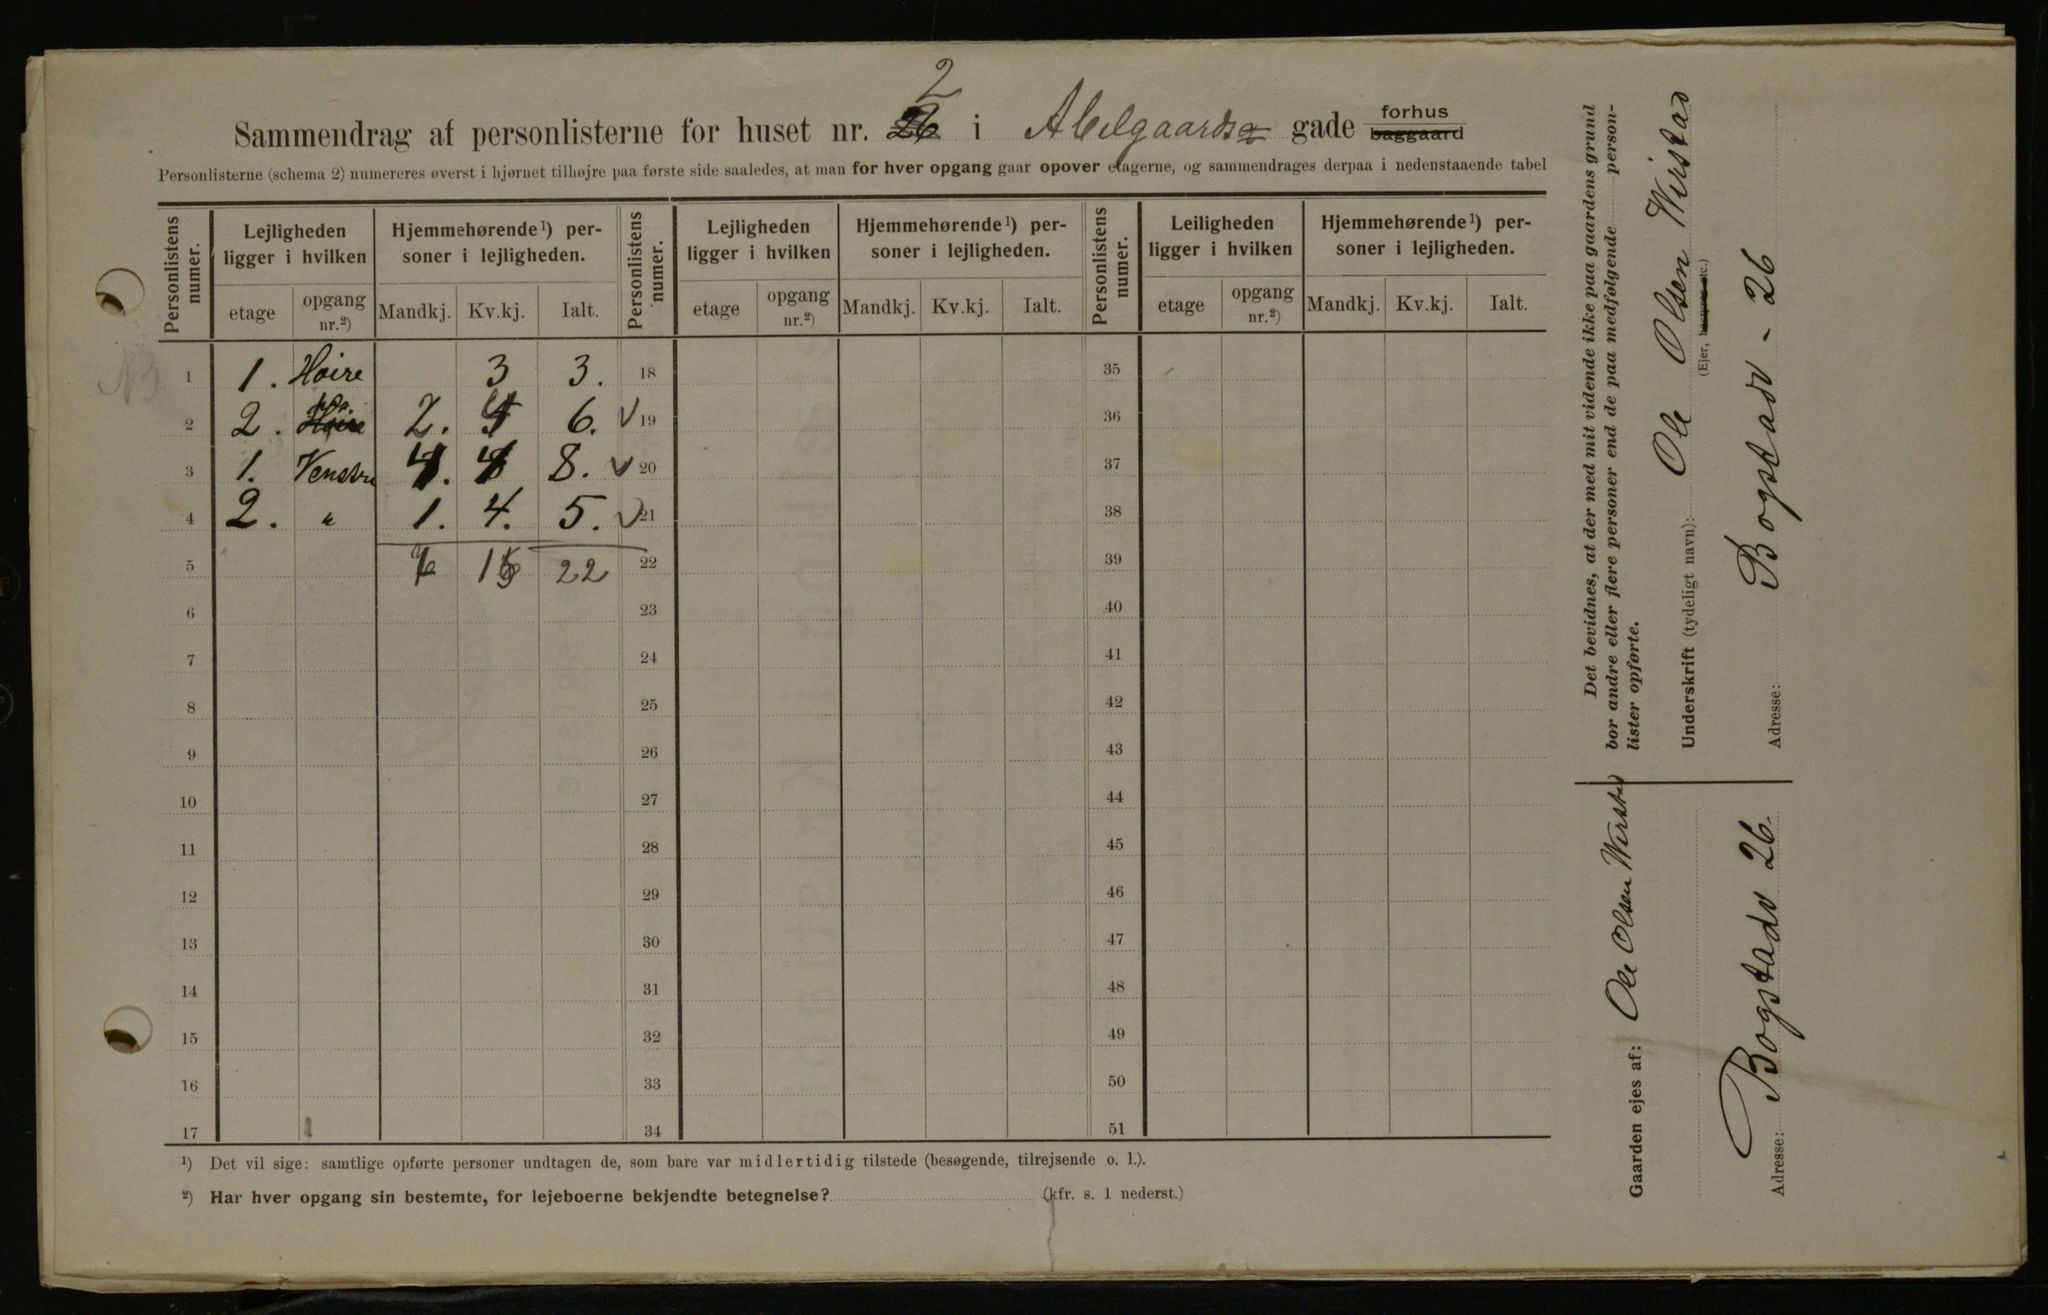 2
Sammendrag af personlisterne for huset nr. 26 i Abelgaardsa gade forhus baggaard
Personlisterne (schema 2) numereres øverst i hjørnet tilhøjre paa første side saaledes, at man for hver opgang gaar opover etagerne, og sammendrages derpaa i nedenstaaende tabel
Personlistens numer. Lejligheden ligger i hvilken Hjemmehørende¹) personer i lejligheden. Personlistens numer. Lejligheden ligger i hvilken Hjemmehørende¹) personer i lejligheden. Personlistens numer. Leiligheden ligger i hvilken Hjemmehørende¹) personer i lejligheden.
etage opgang nr.²) Mandkj. Kv.kj. Ialt. etage opgang nr.²) Mandkj. Kv.kj. Ialt. etage opgang nr.²) Mandkj. Kv.kj. Ialt.
1 1. Høire 3 3. 18 35
2 2. Høire 2. 4 6. √ 19 36
3 1. Venstre 4. 4 8. √ 20 37
4 2. " 1. 4. 5. √ 21 38
5 7 15 22 22 39
6 23 40
7 24 41
8 25 42
9 26 43
10 27 44
11 28 45
12 29 46
13 30 47
14 31 48
15 32 49
16 33 50
17 34 51
¹) Det vil sige: samtlige opførte personer undtagen de, som bare var midlertidig tilstede (besøgende, tilrejsende o. l.).
²) Har hver opgang sin bestemte, for lejeboerne bekjendte betegnelse? (kfr. s. 1 nederst.)
Det bevidnes, at der med mit vidende ikke paa gaardens grund
bor andre eller flere personer end de paa medfølgende person-
lister opførte.
Underskrift (tydeligt navn): Ole Olsen Wirstad
(Ejer, bestyrer etc.)
Adresse: Bogstadv - 26
Gaarden ejes af: Ole Olsen Wirstad
Adresse: Bogstadv 26.